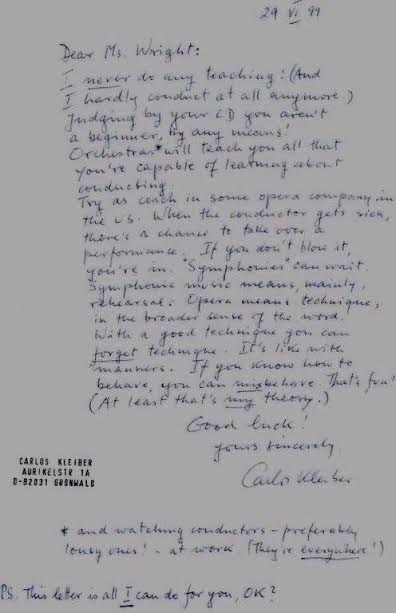 29 VI 99
Dear Ms. Wright:
I never do any teaching! (And
I hardly conduct at all anymore.)
Judging by your CD you aren't
a beginner, by any means!
Orchestras* will teach you all that
you're capable of learning about
conducting
Try as coach in some opera company in
the US. When the conductor gets sick,
there's a chance to take over a
performance. If you don't blow it,
you're in. "Symphonies" can wait.
Symphonic music means, mainly,
rehearsal. Opera means technique,
in the broader sense of the word.
With a good technique you can
forget technique. It's like with
manners. If you know how to
behave, you can misbehave. That's fun!
(At least that's my theory.)
Good luck!
Yours sincerely
Carlos Kleiber
CARLOS KLEIBER
AURIKELSTR 1A
D-82031 GRÜNWALD
* and watching conductors – preferably
lousy ones! – at work (They're everywhere!)
PS. This letter is all I can do for you, OK?